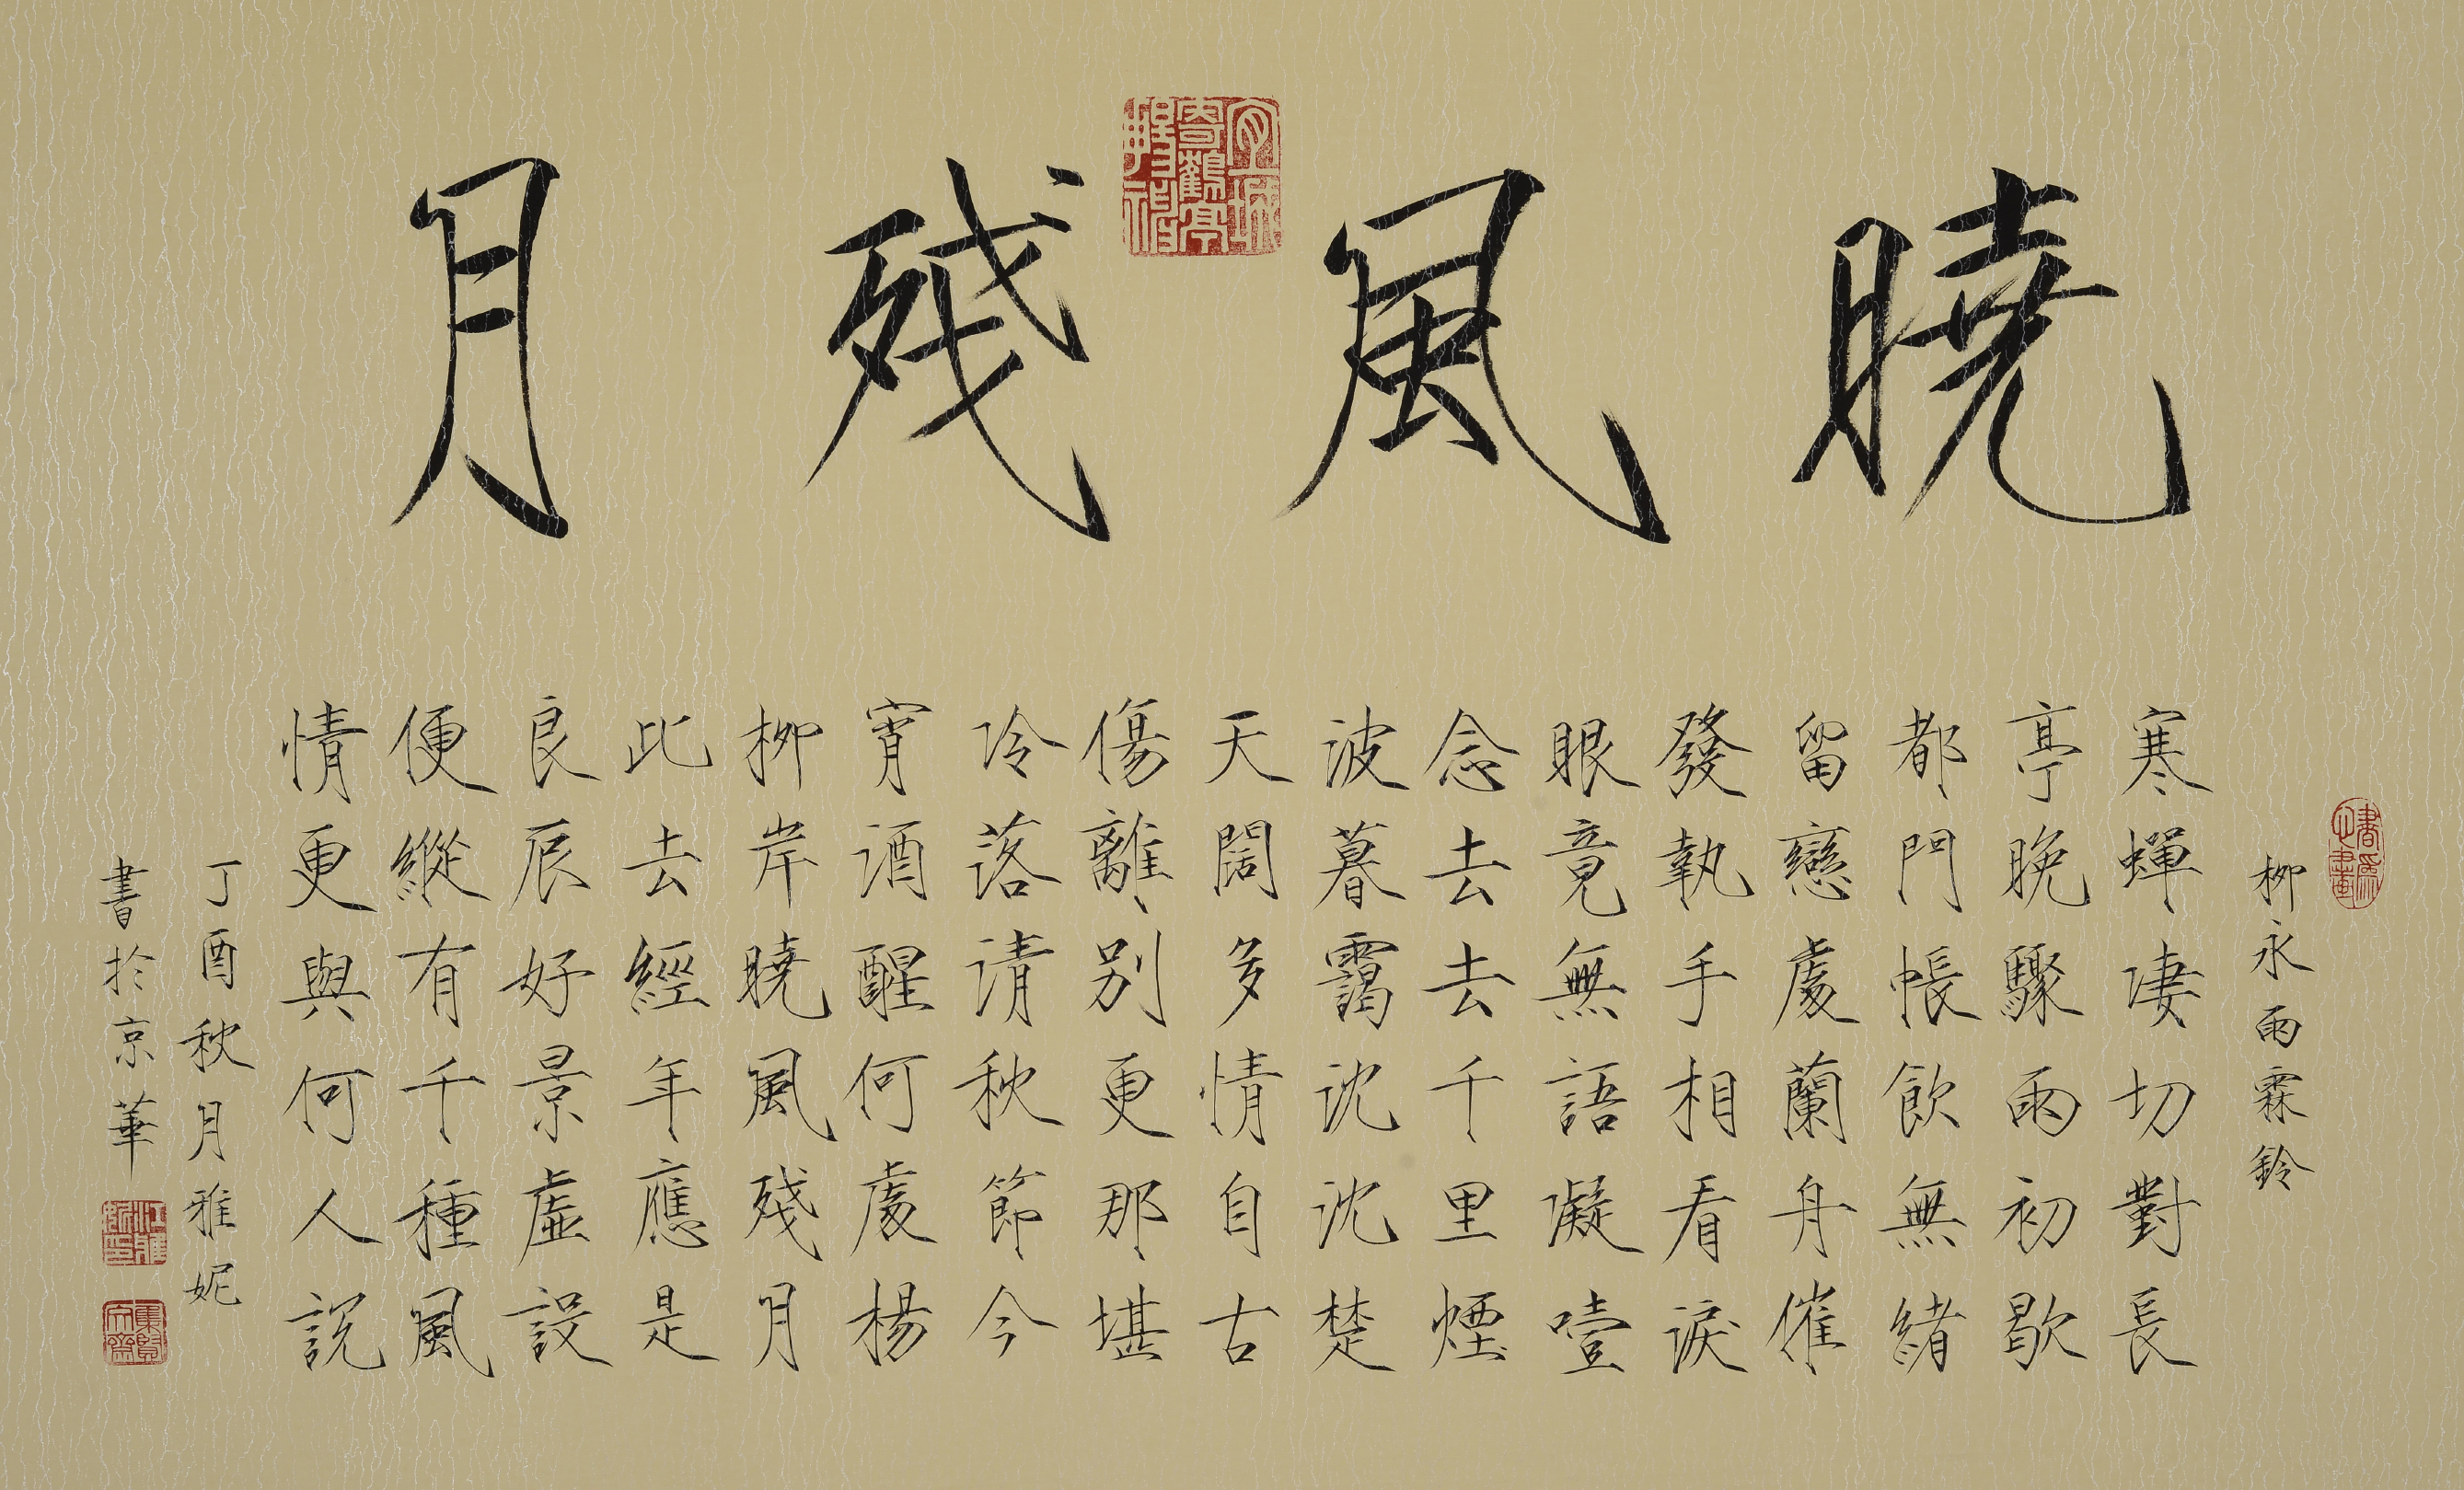 曉風殘月
柳永雨霖鈴
寒蟬淒切對長
亭晚驟雨初歇
都門帳飲無緒
留戀處蘭舟催
發執手相看淚
眼竟無語凝噎
念去去千里煙
波暮靄沈沈楚
天闊多情自古
傷離別更那堪
冷落清秋節今
宵酒醒何處楊
柳岸曉風殘月
此去經年應是
良辰好景虛設
便縱有千種風
情更與何人說
丁酉秋月雅妮
書於京華